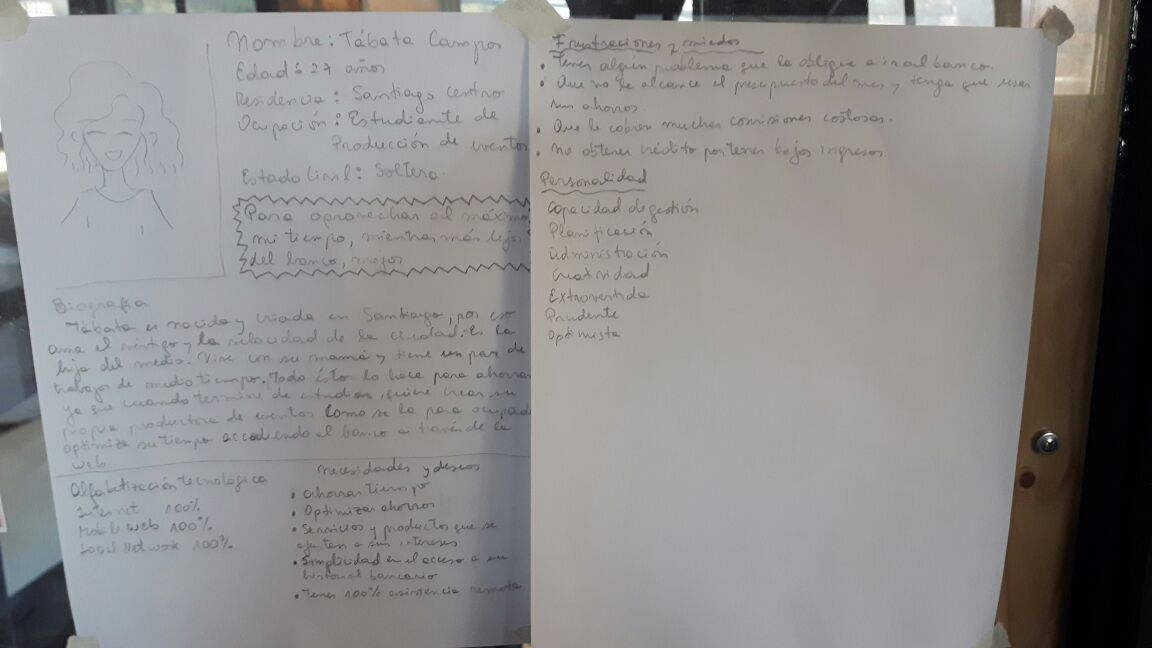 Nombre: Tábata Campos
Edad: 27 años
Residencia: Santiago centro
Ocupación: Estudiante de
Producción de eventos
Estado Civil: Soltera.
Para aprovechar al máximo
mi tiempo, mientras más lejos
del banco, mejor
Biografía
Tábata es nacida y criada en Santiago, por eso
ama el vértigo y la velocidad de la ciudad. Es la
hija del medio. Vive con su mamá y tiene un par de
trabajos de medio tiempo. Todo ésto lo hace para ahorrar
ya que cuando termine de estudiar, quiere crear su
propia productora de eventos Como se la pasa ocupada
optimiza su tiempo accediendo al banco a través de la
web.
Alfabetización tecnológica
Internet 100%
Mobile web 100%
Social Network 100%
Necesidades y deseos
• Ahorrar tiempo
• Optimizar ahorros
• Servicios y productos que se
ajusten a sus intereses
• Simplicidad en el acceso a su
historial bancario
• Tener 100% asistencia remota
Frustraciones y miedos
• Tener algún problema que la obligue a ir al banco.
• Que no le alcance el presupuesto del mes y tenga que usar
sus ahorros.
• Que le cobren muchas comisiones costosas.
• No obtener crédito por tener bajos ingresos.
Personalidad
Capacidad de gestión
Planificación
Administración
Creatividad
Extrovertida
Prudente
Optimista